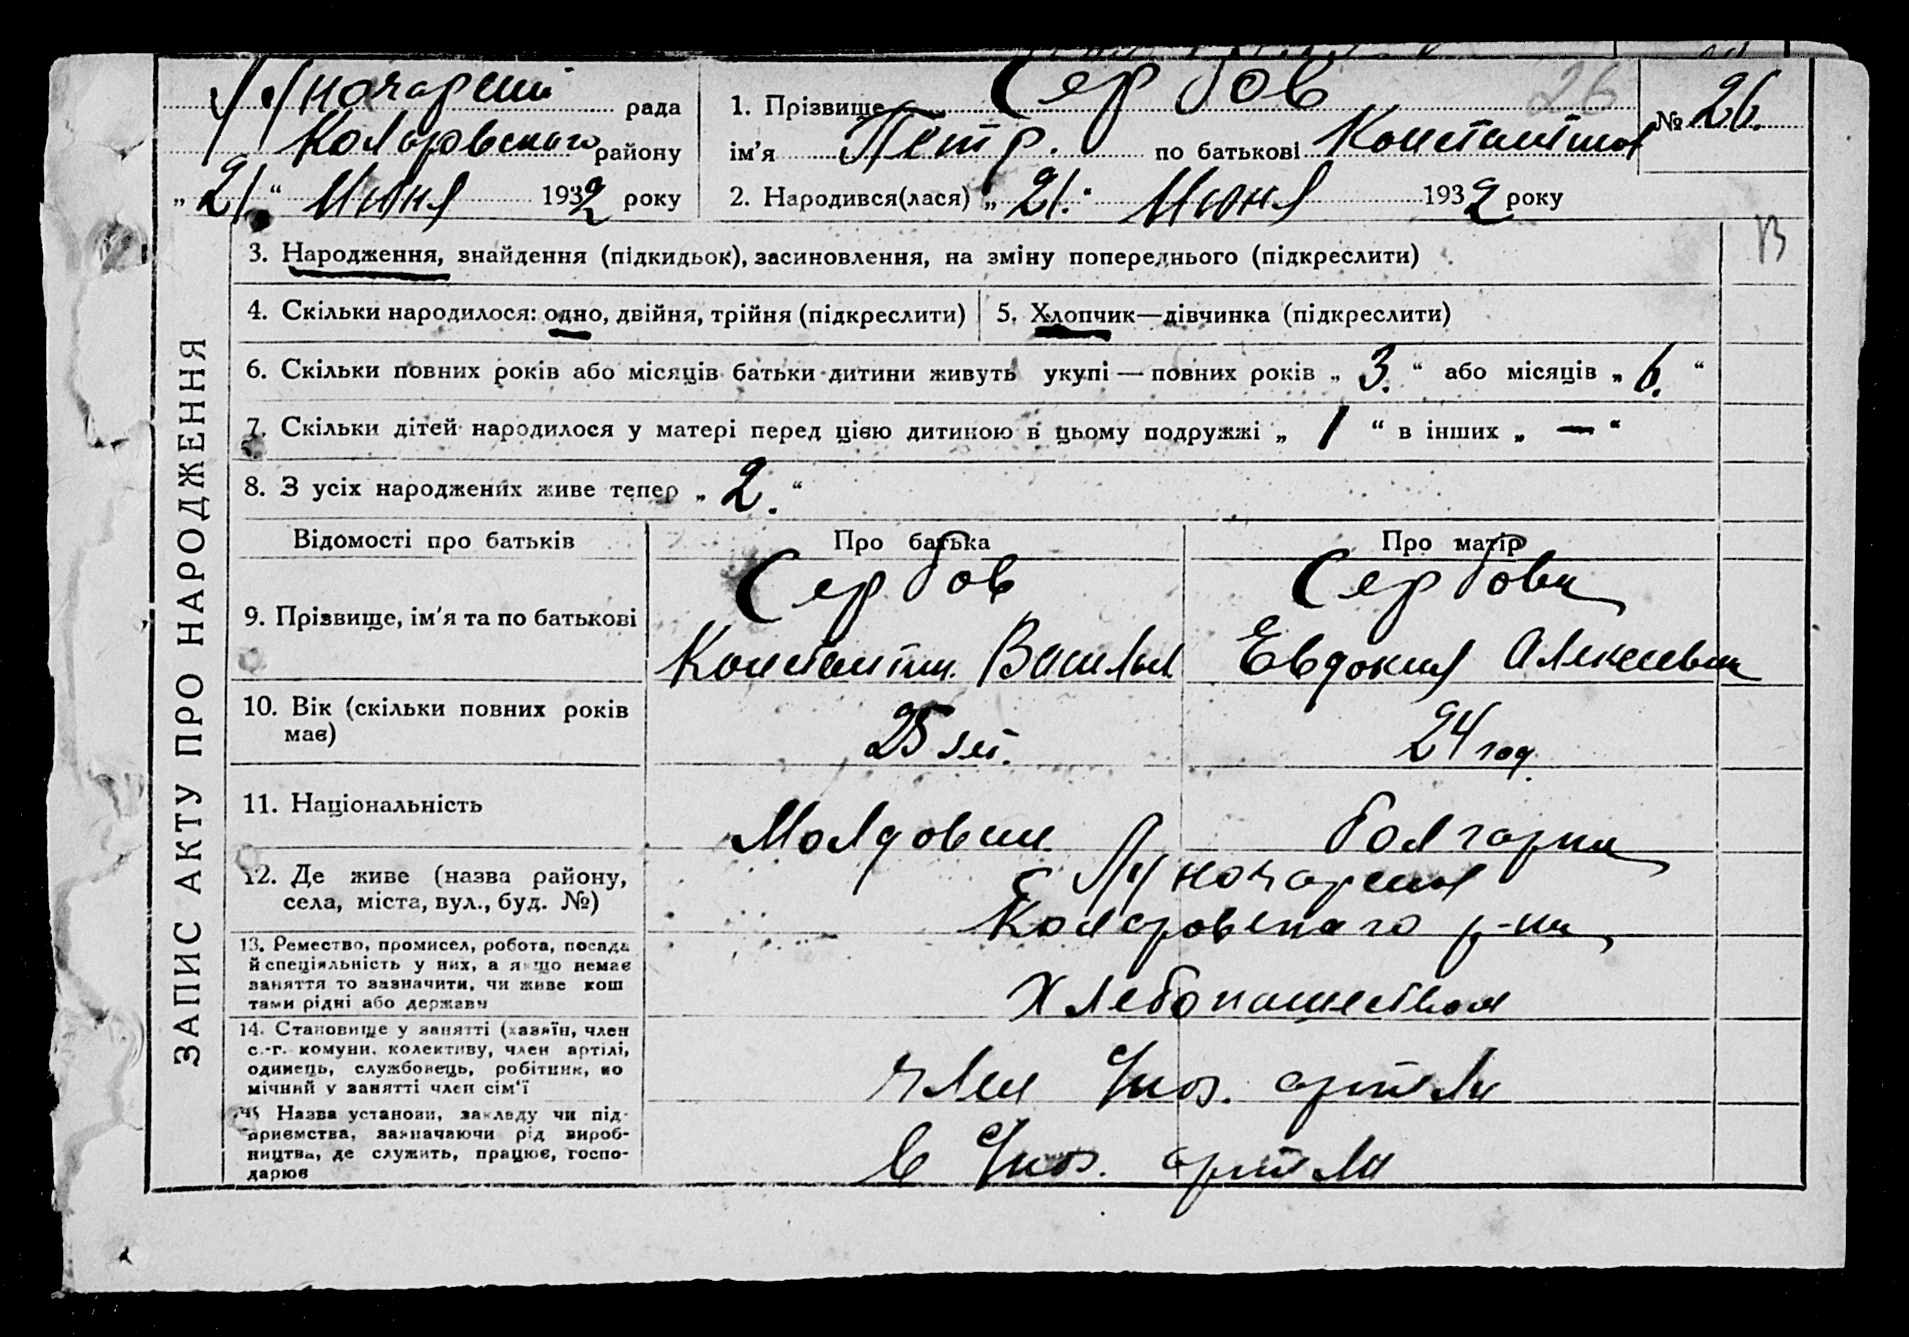 Луночарский рада
Коларовского району
„ 21. “ Июня 1932 року
1. Прізвище Сербов
ім'я Петр. по батькові Константинов
2. Народився(лася) „ 21. “ Июня 1932 року
26
№ 26.
ЗАПИС АКТУ ПРО НАРОДЖЕННЯ
3. Народження, знайдення (підкидьок), засиновлення, на зміну попереднього (підкреслити)
4. Скільки народилося: одно, двійня, трійня (підкреслити)
5. Хлопчик—дівчинка (підкреслити)
6. Скільки повних років або місяців батьки дитини живуть укупі — повних років „ 3. “ або місяців „ 6. “
7. Скільки дітей народилося у матері перед цією дитиною в цьому подружжі „ 1 “ в інших „ — “
8. З усіх народжених живе тепер „ 2. “
Відомості про батьків
Про батька
Про матір
9. Прізвище, ім'я та по батькові
Сербов
Константин. Васильев
Сербова
Евдокия Алексеевна
10. Вік (скільки повних років
має)
25 лет.
24 год.
11. Національність
Молдован
болгарка
12. Де живе (назва району,
села, міста, вул., буд. №)
С. Луночарский
Коларовского р-на
13. Ремество, промисел, робота, посада
й спеціяльність у них, а якщо немає
заняття то зазначити, чи живе кош
тами рідні або держави
Хлебопашеством
14. Становище у занятті (хазяїн, член
с.-г. комуни, колективу, член артілі,
одинець, службовець, робітник, по
мічний у занятті член сім'ї
член с/хоз. артели
15 Назва установи, закладу чи під-
приємства, зазначаючи рід вироб-
ництва, де служить, працює, госпо-
дарює
в с/хоз. артели